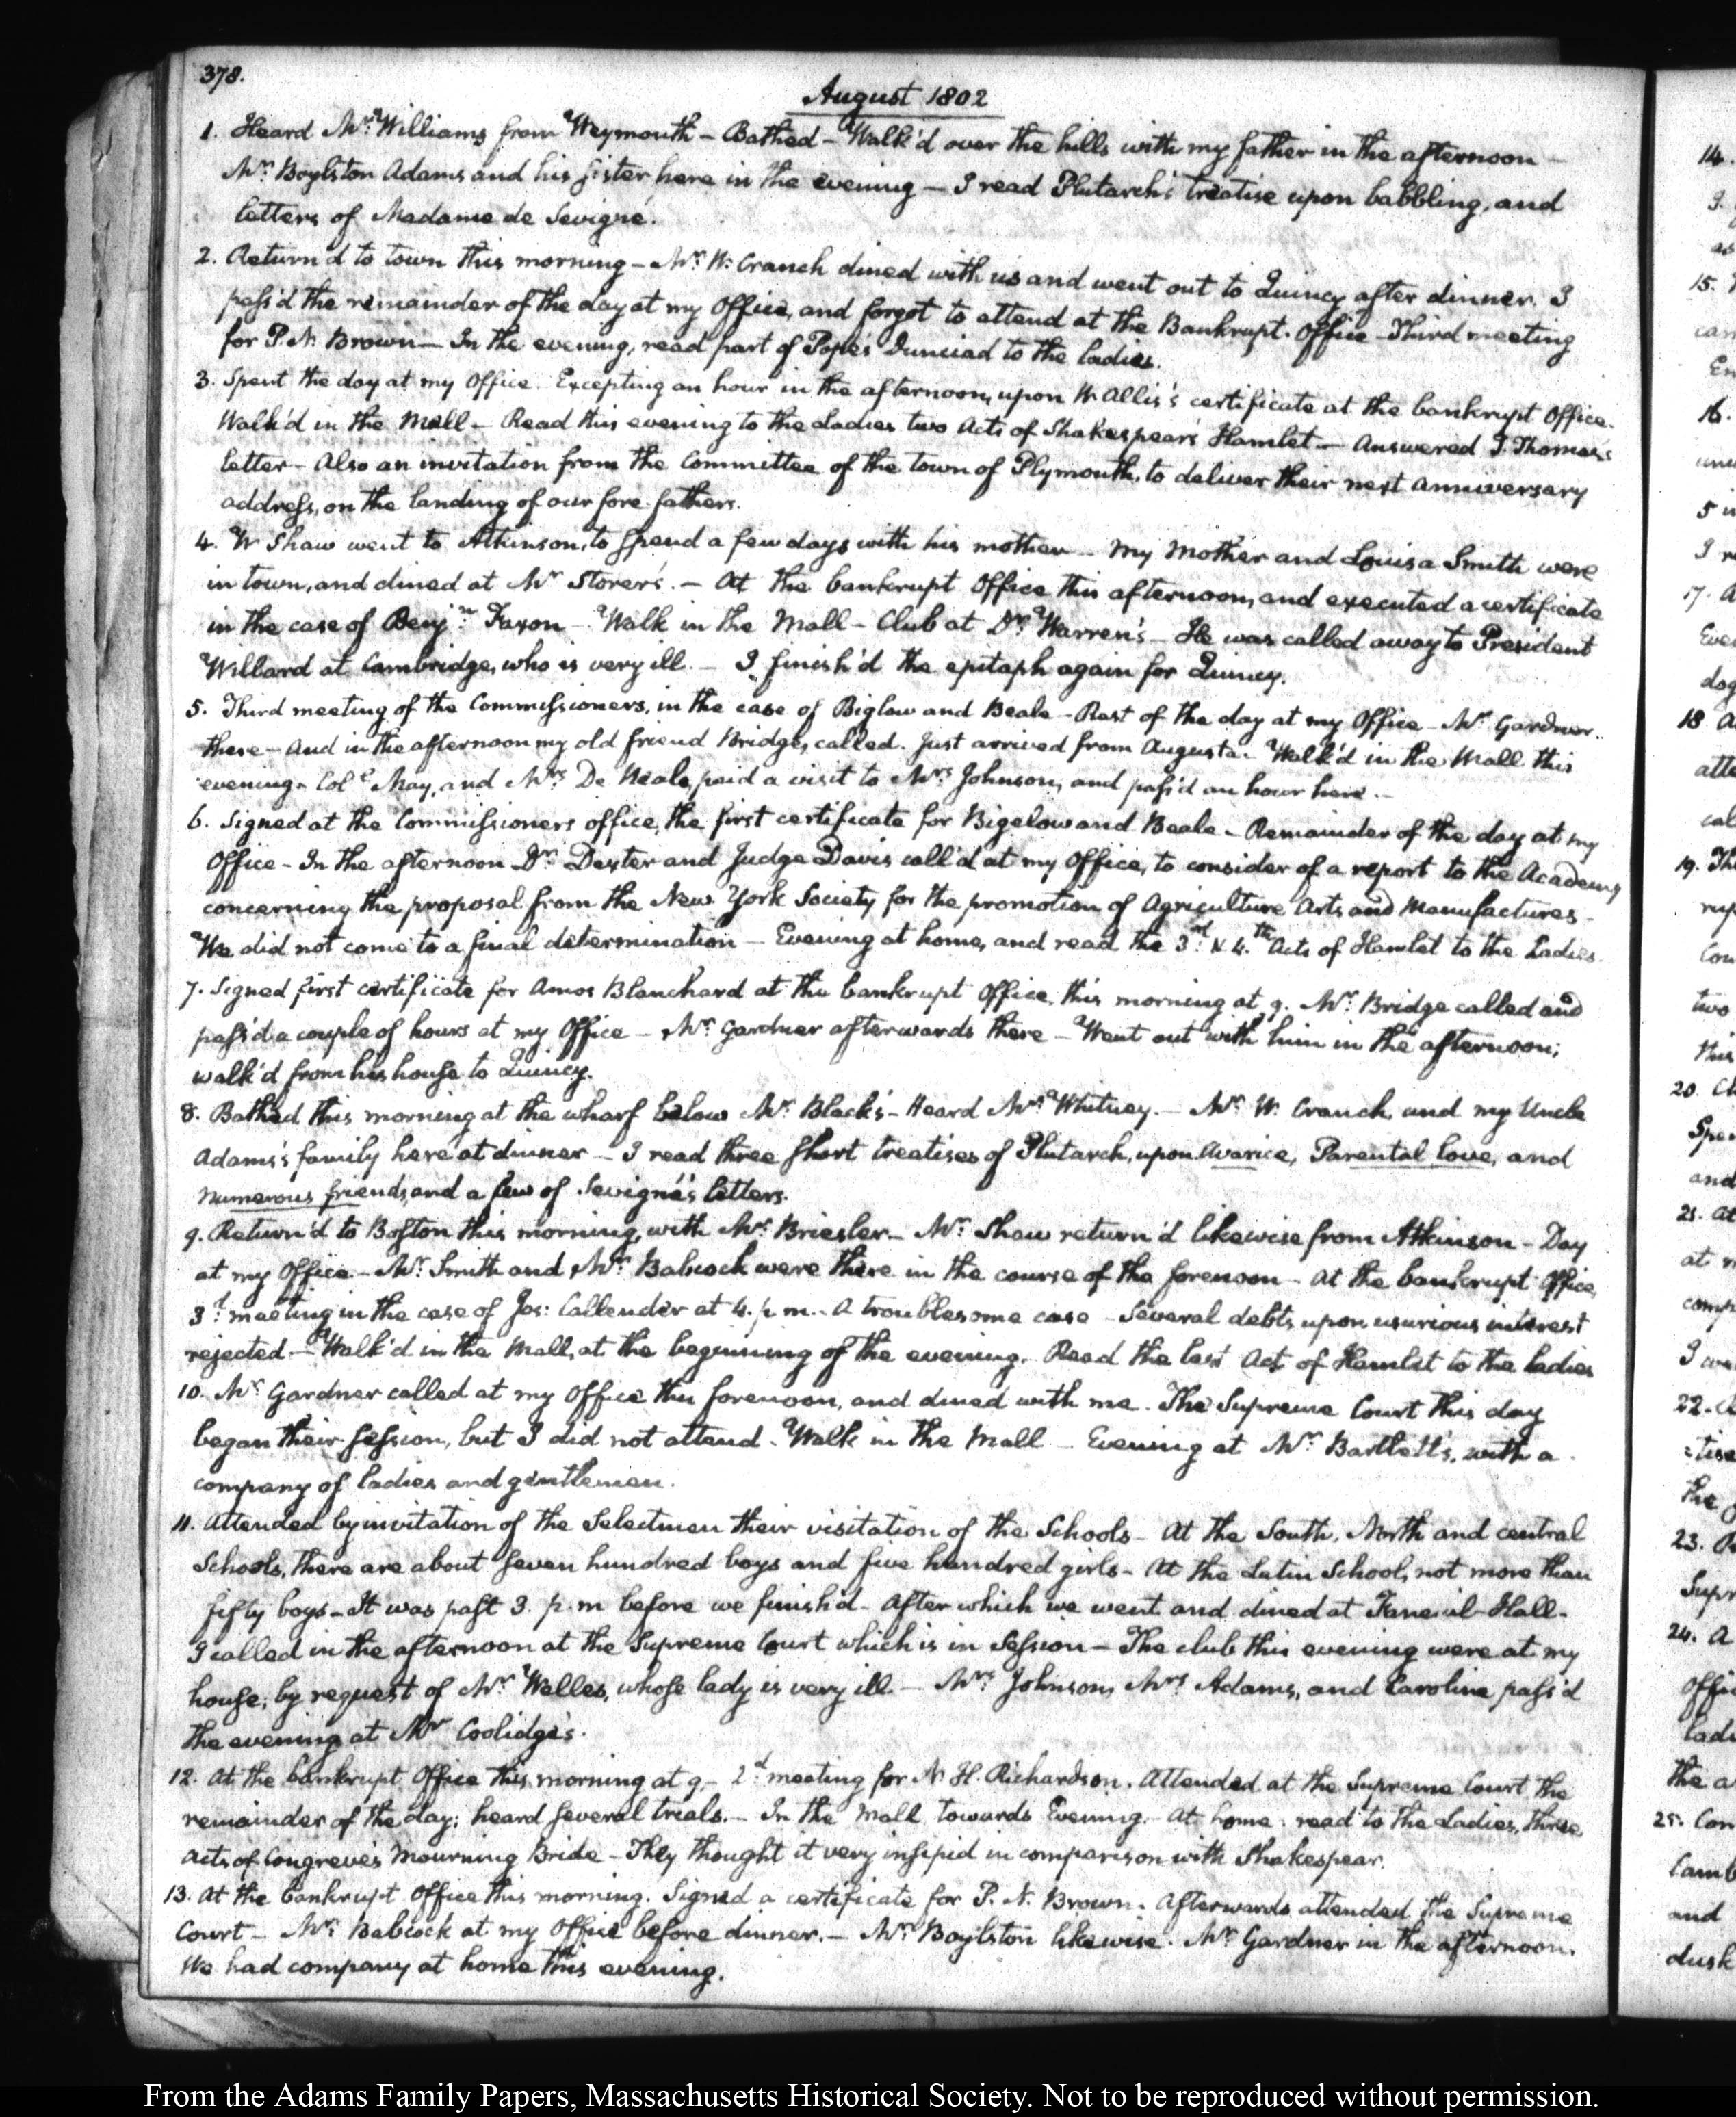 378.
August 1802
1. Heard Mr. Williams from Weymouth – Bathed – Walk'd over the hills with my father in the afternoon –
Mr. Boylston Adams and his sister here in the evening – I read Plutarch's treatise upon babbling, and
letters of Madame de Sevigné.
2. Return'd to town this morning – Mr. W. Cranch dined with us and went out to Quincy after dinner. I
pass'd the remainder of the day at my Office, and forgot to attend at the Bankrupt. Office – Third meeting
for P. N. Brown – In the evening, read part of Pope's Dunciad to the ladies.
3. Spent the day at my Office. Excepting an hour in the afternoon, upon W. Allis's certificate at the bankrupt Office.
Walk'd in the Mall – Read this evening to the Ladies two Acts of Shakespear's Hamlet. – Answered J. Thomas's
letter – Also an invitation from the Committee of the town of Plymouth, to deliver their next anniversary
address, on the landing of our fore-fathers.
4. W Shaw went to Atkinson, to spend a few days with his mother – My Mother and Louisa Smith were
in town, and dined at Mr Storer's. – At the bankrupt Office this afternoon, and executed a certificate
in the case of Benjn. Faxon – Walk in the Mall – Club at Dr. Warren's – He was called away to President
Willard at Cambridge, who is very ill. – I finish'd the epitaph again for Quincy.
5. Third meeting of the Commissioners, in the case of Biglow and Beale – Rest of the day at my Office – Mr. Gardner
there – And in the afternoon my old friend Bridge, called. Just arrived from Augusta. Walk'd in the Mall this
evening – Coll. May, and Mrs. De Neale, paid a visit to Mrs. Johnson, and pass'd an hour here. –
6. Signed at the Commissioners office, the first certificate for Bigelow and Beale – Remainder of the day at my
Office – In the afternoon Dr. Dexter and Judge Davis call'd at my Office, to consider of a report to the Academy
concerning the proposal from the New York Society for the promotion of Agriculture Arts and Manufactures –
We did not come to a final determination – Evening at home, and read the 3rd. & 4.th Acts of Hamlet to the Ladies.
7. Signed first certificate for Amos Blanchard at the bankrupt Office, this morning at 9. Mr. Bridge called and
pass'd a couple of hours at my Office – Mr. Gardner afterwards there – Went out with him in the afternoon;
walk'd from his house to Quincy.
8. Bathed this morning at the wharf below Mr. Black's – Heard Mr. Whitney. – Mr. W. Cranch, and my Uncle
Adams's family here at dinner – I read three short treatises of Plutarch, upon Avarice, Parental love, and
numerous friends, and a few of Sevigné's letters.
9. Return'd to Boston this morning, with Mr. Briesler – Mr. Shaw return'd likewise from Atkinson – Day
at my Office – Mr. Smith and Mr. Babcock were there in the course of the forenoon – At the bankrupt Office,
3d. meeting in the case of Jos: Callender at 4. p.m. – A troublesome case – Several debts upon usurious interest
rejected – Walk'd in the Mall, at the beginning of the evening. Read the last Act of Hamlet to the ladies
10. Mr. Gardner called at my Office this forenoon, and dined with me. The Supreme Court this day
began their session, but I did not attend. Walk in the Mall – Evening at Mr. Bartlett's, with a
company of ladies and gentlemen.
11. Attended by invitation of the Selectmen their visitation of the Schools – At the South, North and central
Schools, there are about seven hundred boys and five hundred girls – At the Latin School, not more than
fifty boys – It was past 3. p.m before we finish'd – After which we went and dined at Faneuil-Hall –
I called in the afternoon at the Supreme Court which is in Session – The club this evening were at my
house; by request of Mr. Welles, whose lady is very ill – Mrs Johnson, Mrs Adams, and Caroline pass'd
the evening at Mr Coolidge's.
12. At the bankrupt Office this morning at 9 – 2d. meeting for N. H. Richardson. Attended at the Supreme Court the
remainder of the day; heard several trials. – In the Mall towards Evening. At home: read to the Ladies, three
acts of Congreve's Mourning Bride – They thought it very insipid in comparison with Shakespear.
13. At the bankrupt Office this morning. Signed a certificate for P. N. Brown. Afterwards attended the Supreme
Court – Mr. Babcock at my Office before dinner. – Mr. Boylston likewise. Mr. Gardner in the afternoon.
We had company at home this evening.
14.
15.
16.
17.
18
19.
20.
21.
22.
23.
24.
25.
From the Adams Family Papers, Massachusetts Historical Society. Not to be reproduced without permission.